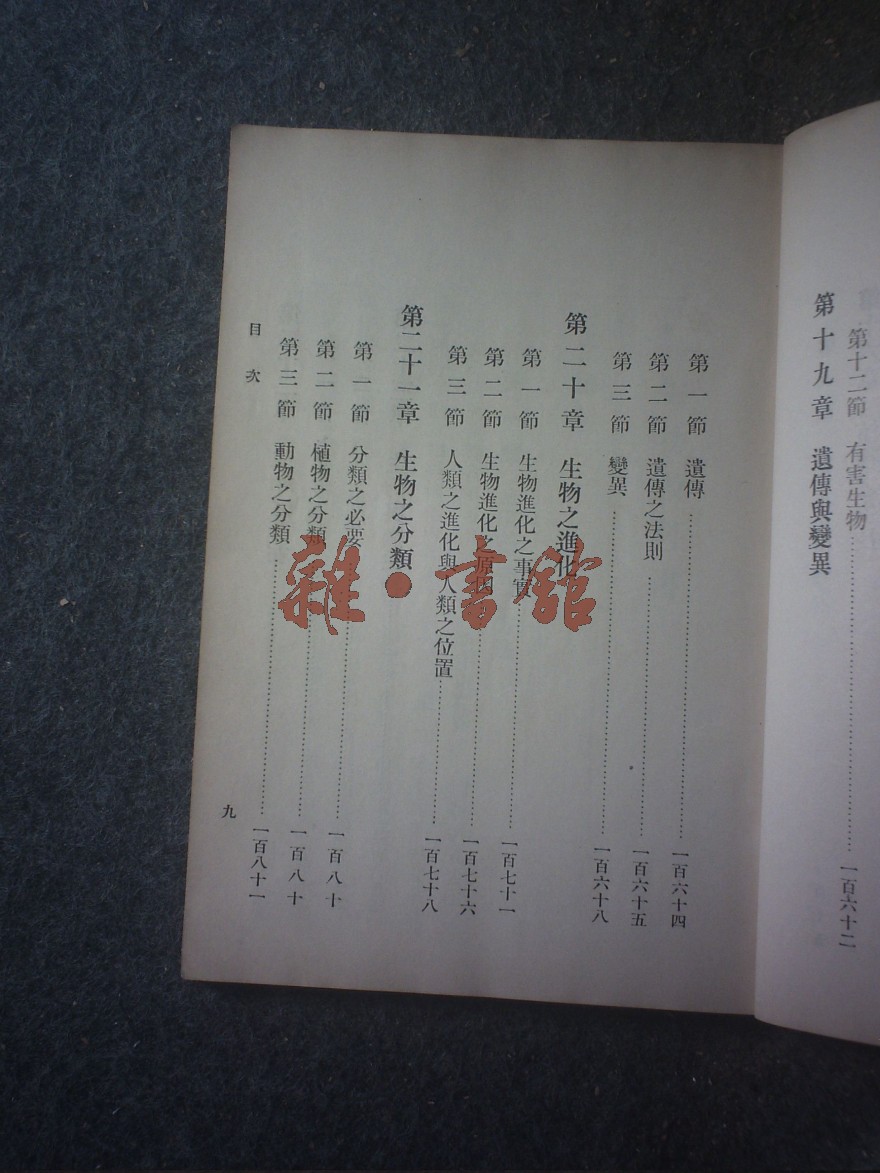 第十二節 有害生物 一百六十二
第十九章 遺傳與變異
第一節 遺傳 一百六十四
第二節 遺傳之法則 一百六十五
第三節 變異 一百六十八
第二十章 生物之進化
第一節 生物進化之事實 一百七十一
第二節 生物進化之原因 一百七十六
第三節 人類之進化與人類之位置 一百七十八
第二十一章 生物之分類
第一節 分類之必要 一百八十
第二節 植物之分類 一百八十
第三節 動物之分類 一百八十一
目次 九
雜·書館